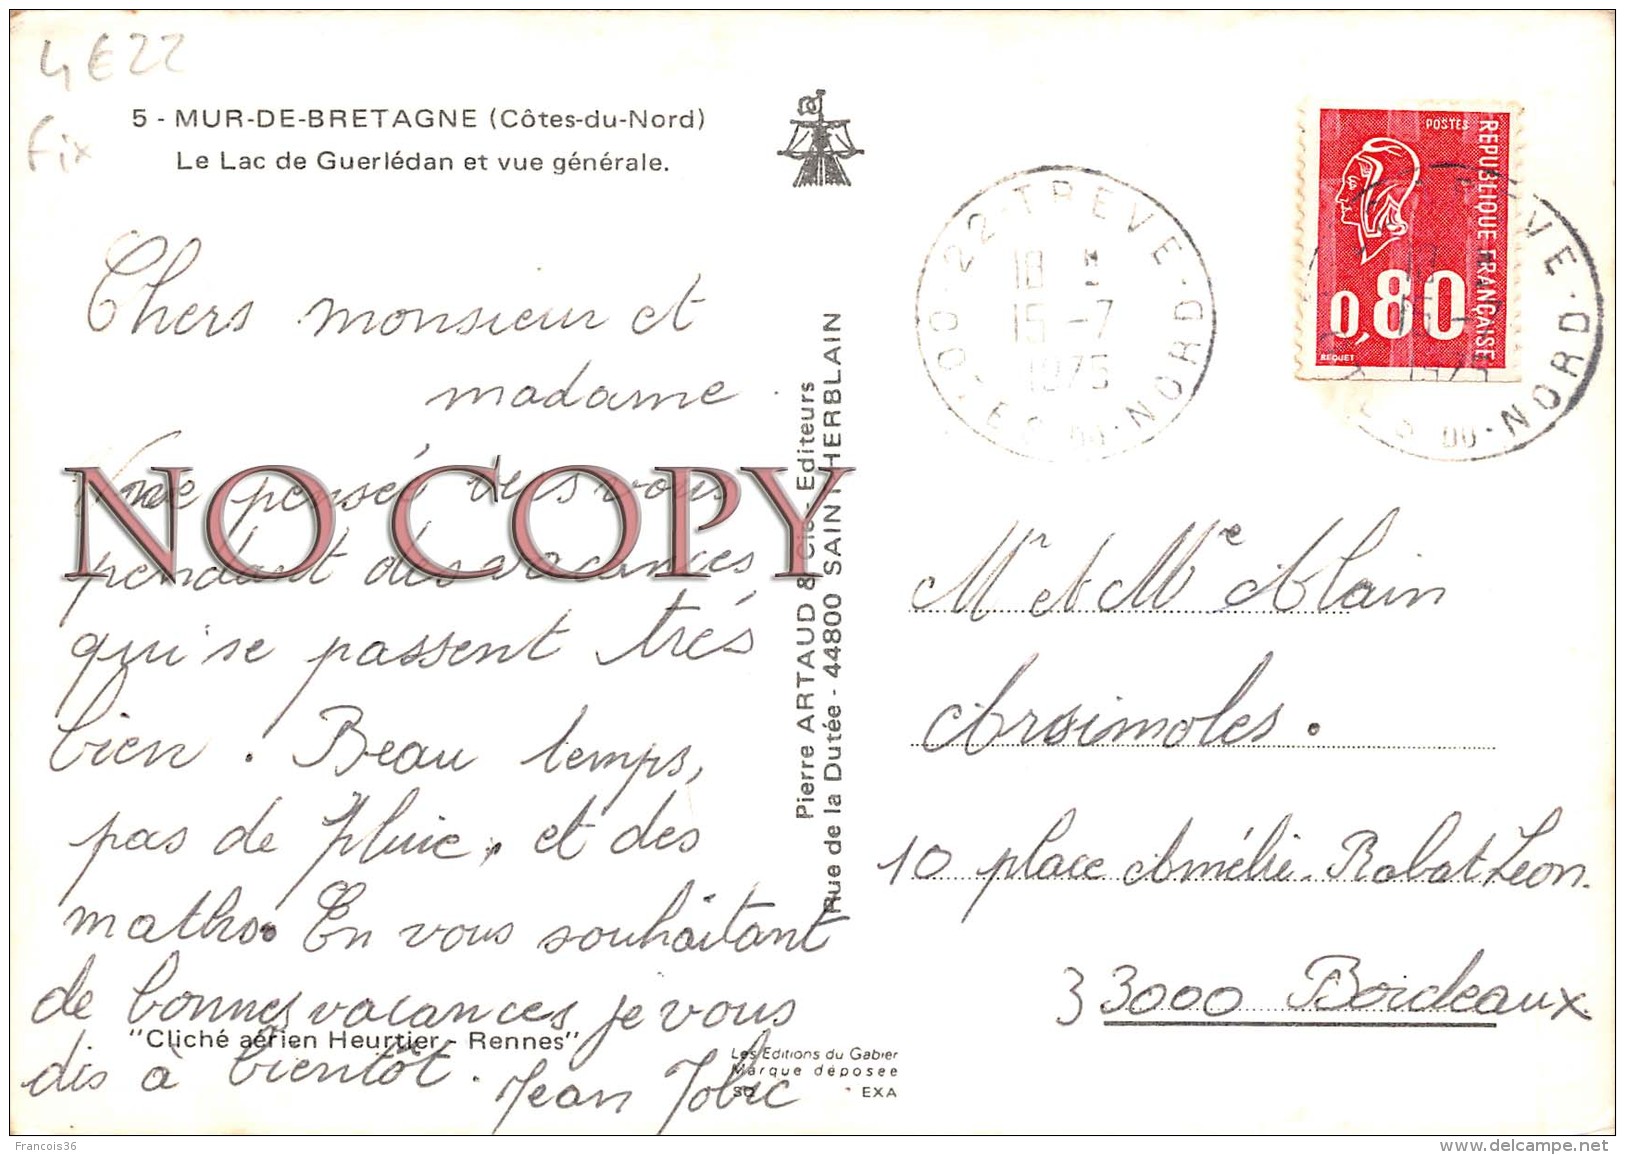 4E22
Fix
5 - MUR-DE-BRETAGNE (Côtes-du-Nord)
Le Lac de Guerlédan et vue générale.
Chers monsieur et
madame.
Une pensée vers vous
pendant des vacances
qui se passent très
bien. Beau temps,
pas de pluie. et des
maths. En vous souhaitant
de bonnes vacances je vous
dis à bientôt. Jean
"Cliché aérien Heurtier - Rennes"
NO COPY
Pierre ARTAUD & Cie - Editeurs
Rue de la Dutée - 44800 SAINT-HERBLAIN
Les Editions du Gabier
Marque déposée
EXA
22 - TREVE
18 H
15 -7
1975
DU - NORD
POSTES
REPUBLIQUE FRANÇAISE
0,80
BEQUET
EVE
DU - NORD
Mr et Me Alain
10 place Amélie Rabat Léon.
33000 Bordeaux
Francois36
www.delcampe.net